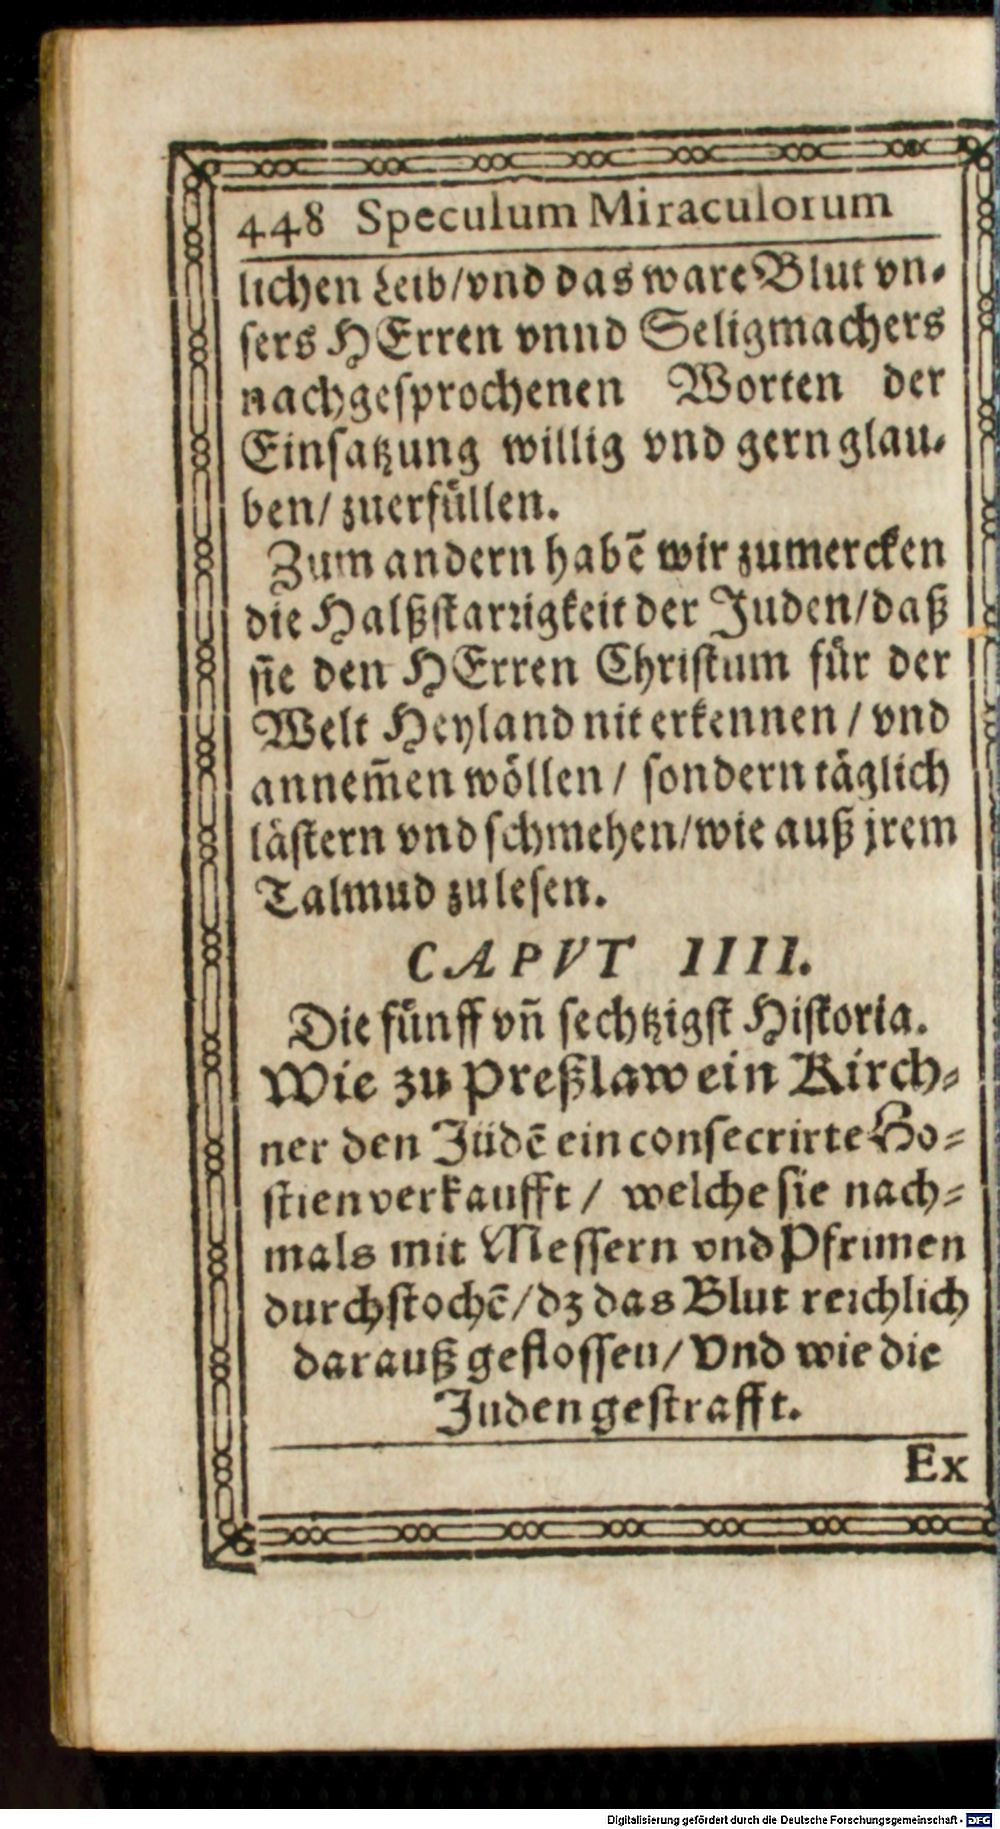 448 Speculum Miraculorum
lichen Leib/vnd das ware Blut vn-
sers HErren vnnd Seligmachers
nachgesprochenen Worten der
Einsatzung willig vnd gern glau-
ben/ zuerfüllen.
Zum andern habē wir zumercken
die Halßstarrigkeit der Juden/daß
sie den HErren Christum für der
Welt Heyland nit erkennen / vnd
annem̃en wöllen / sondern täglich
lästern vnd schmehen/wie auß jrem
Talmud zulesen.
CAPVT IIII.
Die fünff vñ sechtzigst Historia.
Wie zu Preßlaw ein Kirch-
ner den Jüdē ein consecrirte Ho-
stien verkaufft / welche sie nach-
mals mit Messern vnd Pfrimen
durchstochē/dz das Blut reichlich
darauß geflossen/ Vnd wie die
Juden gestrafft.
Ex
Digitalisierung gefördert durch die Deutsche Forschungsgemeinschaft - DFG